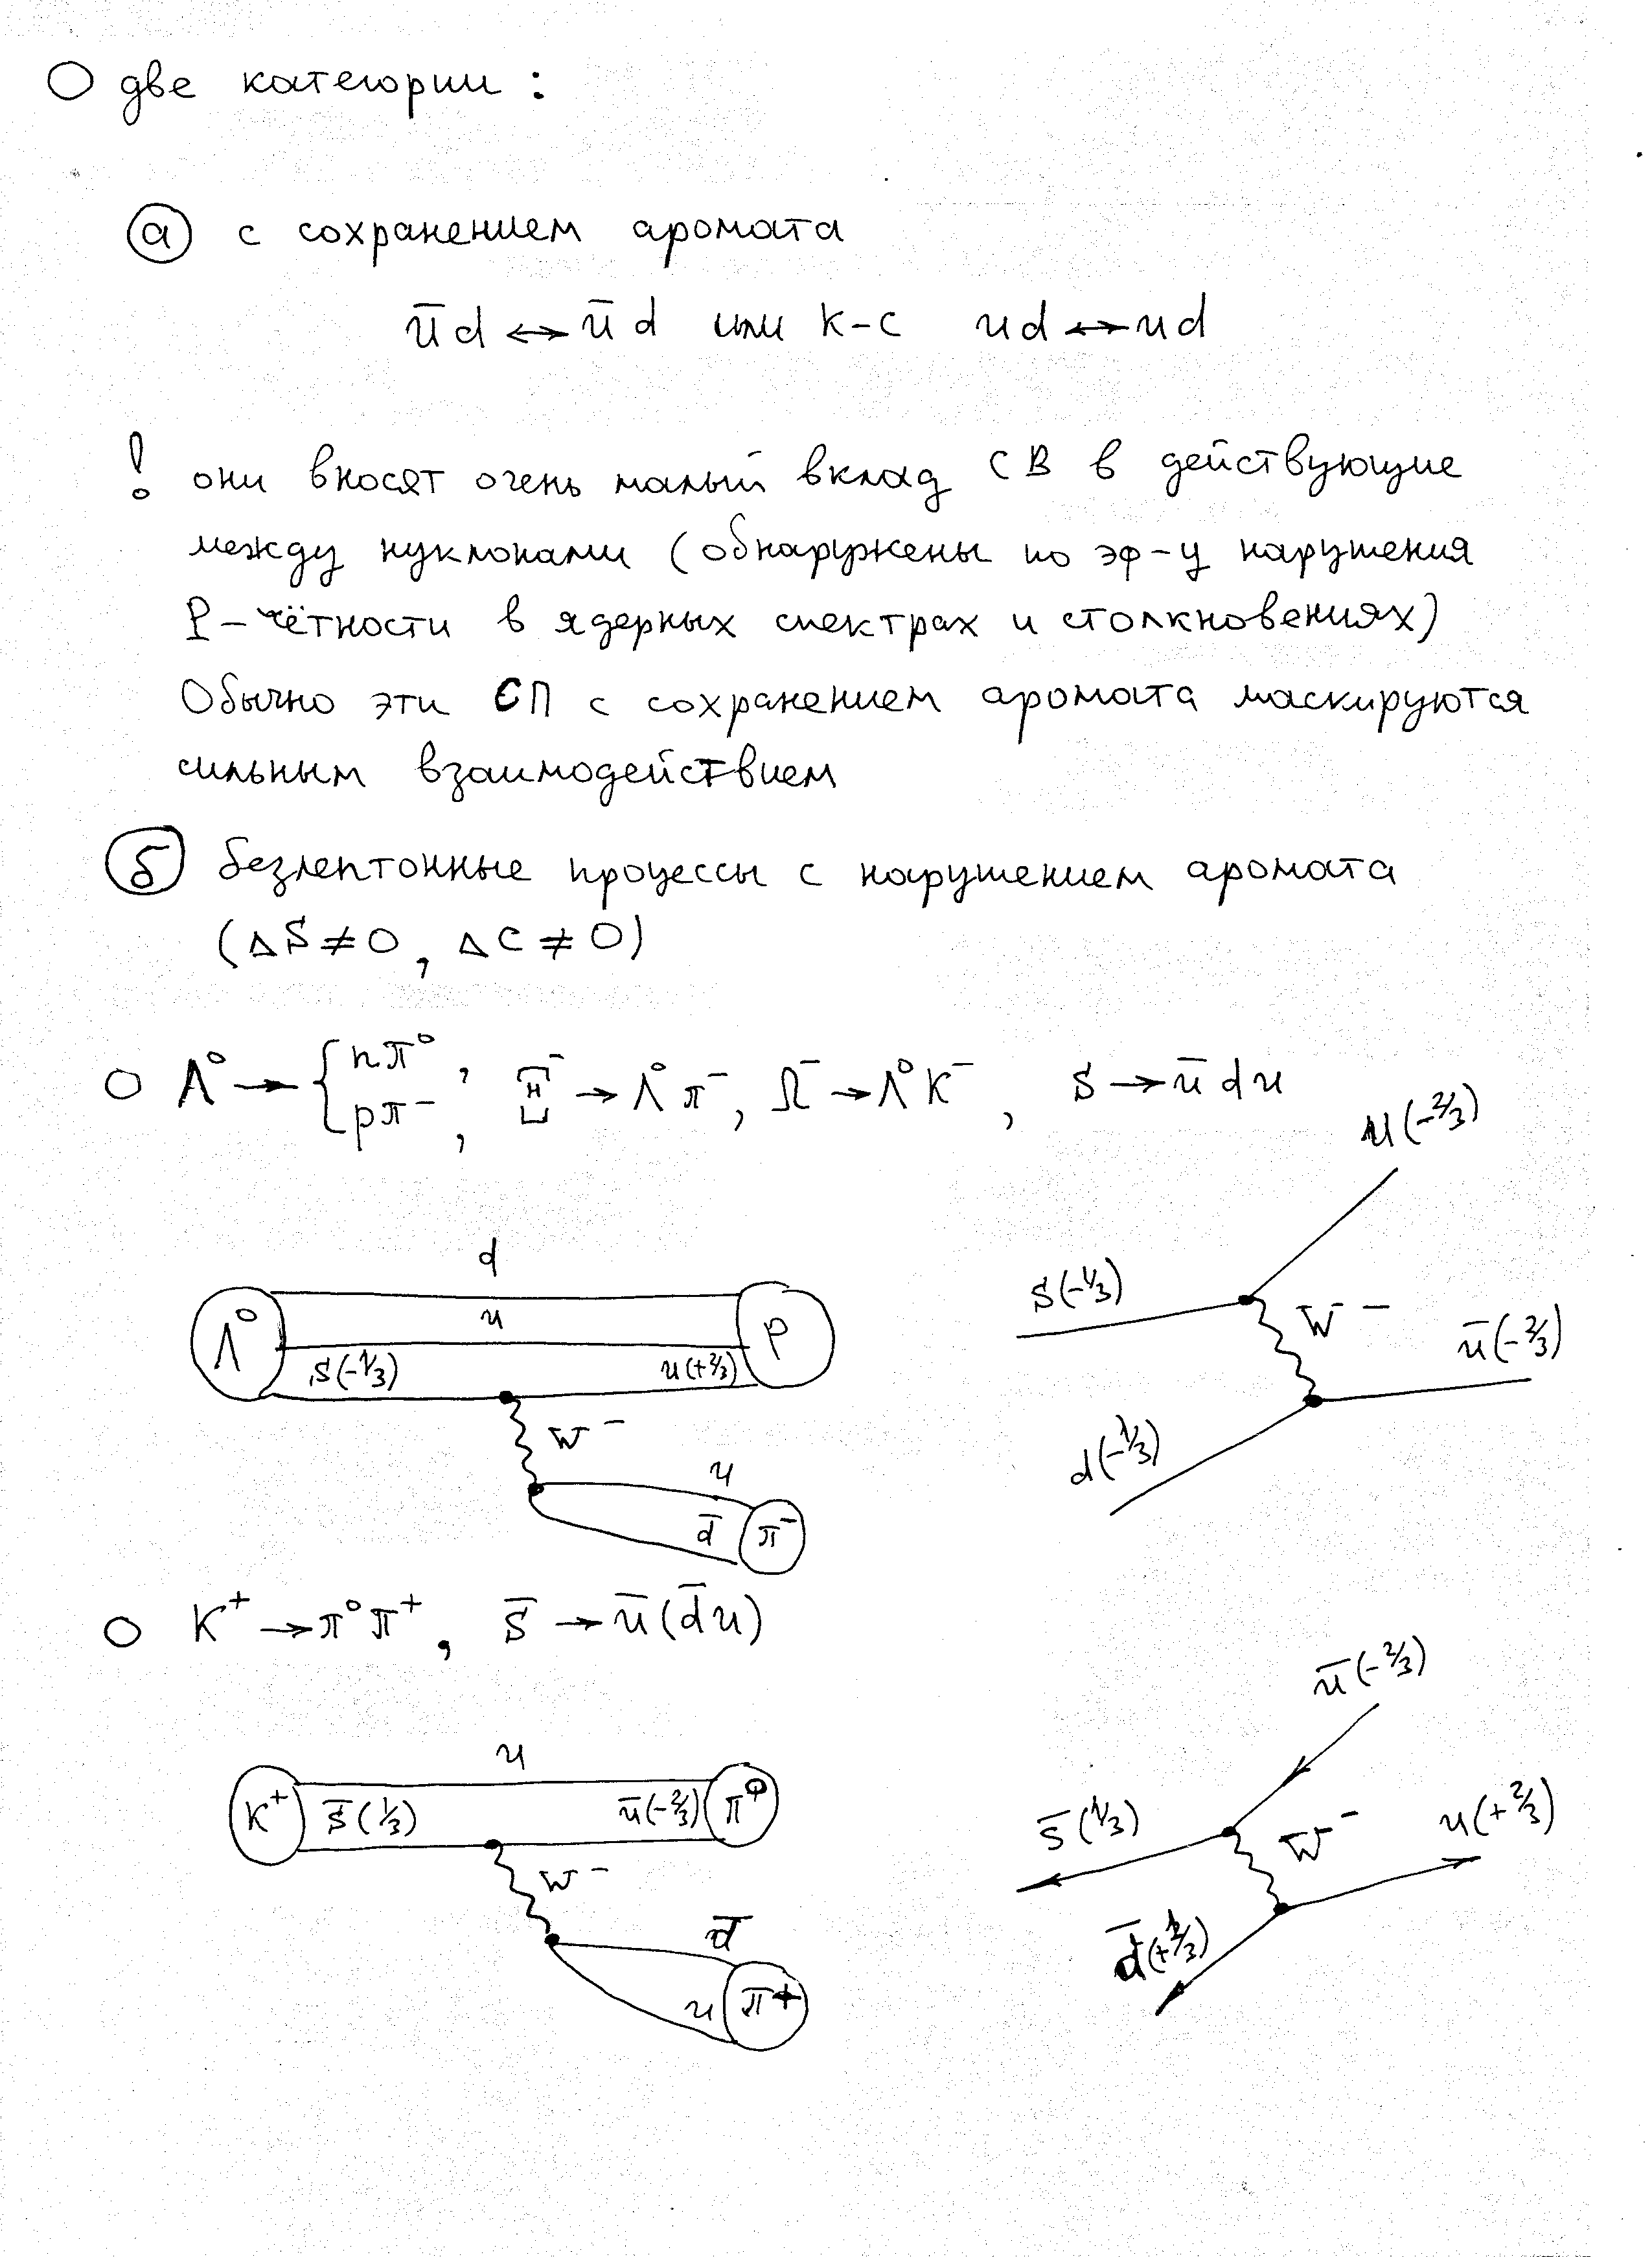 две категории :
а с сохранением аромата
u̅d ↔ u̅d или к-с ud ↔ ud
! они вносят очень малый вклад СВ в действующие
между нуклонами (обнаружены по эф-у нарушения
P-чётности в ядерных спектрах и столкновениях)
Обычно эти СП с сохранением аромата маскируются
сильным взаимодействием
б безлептонные процессы с нарушением аромата
(ΔS≠0, ΔC≠0)
Λ⁰ → { nπ⁰, pπ⁻, Ξ⁻ → Λ⁰π⁻, Ω⁻ → Λ⁰K⁻, s → u̅du
u(-2/3)
d
s(-1/3)
Λ⁰ u P
W⁻
u̅(-2/3)
s(-1/3) u(+2/3)
W⁻
d(-1/3)
u
d̅ π⁻
K⁺ → π⁰π⁺, s̅ → u̅(d̅u)
u̅(-2/3)
u
K⁺ s̅(1/3) u̅(-2/3) π⁰
s̅(1/3) W⁻ u(+2/3)
W⁻
d̅
d̅(+1/3)
u π⁺